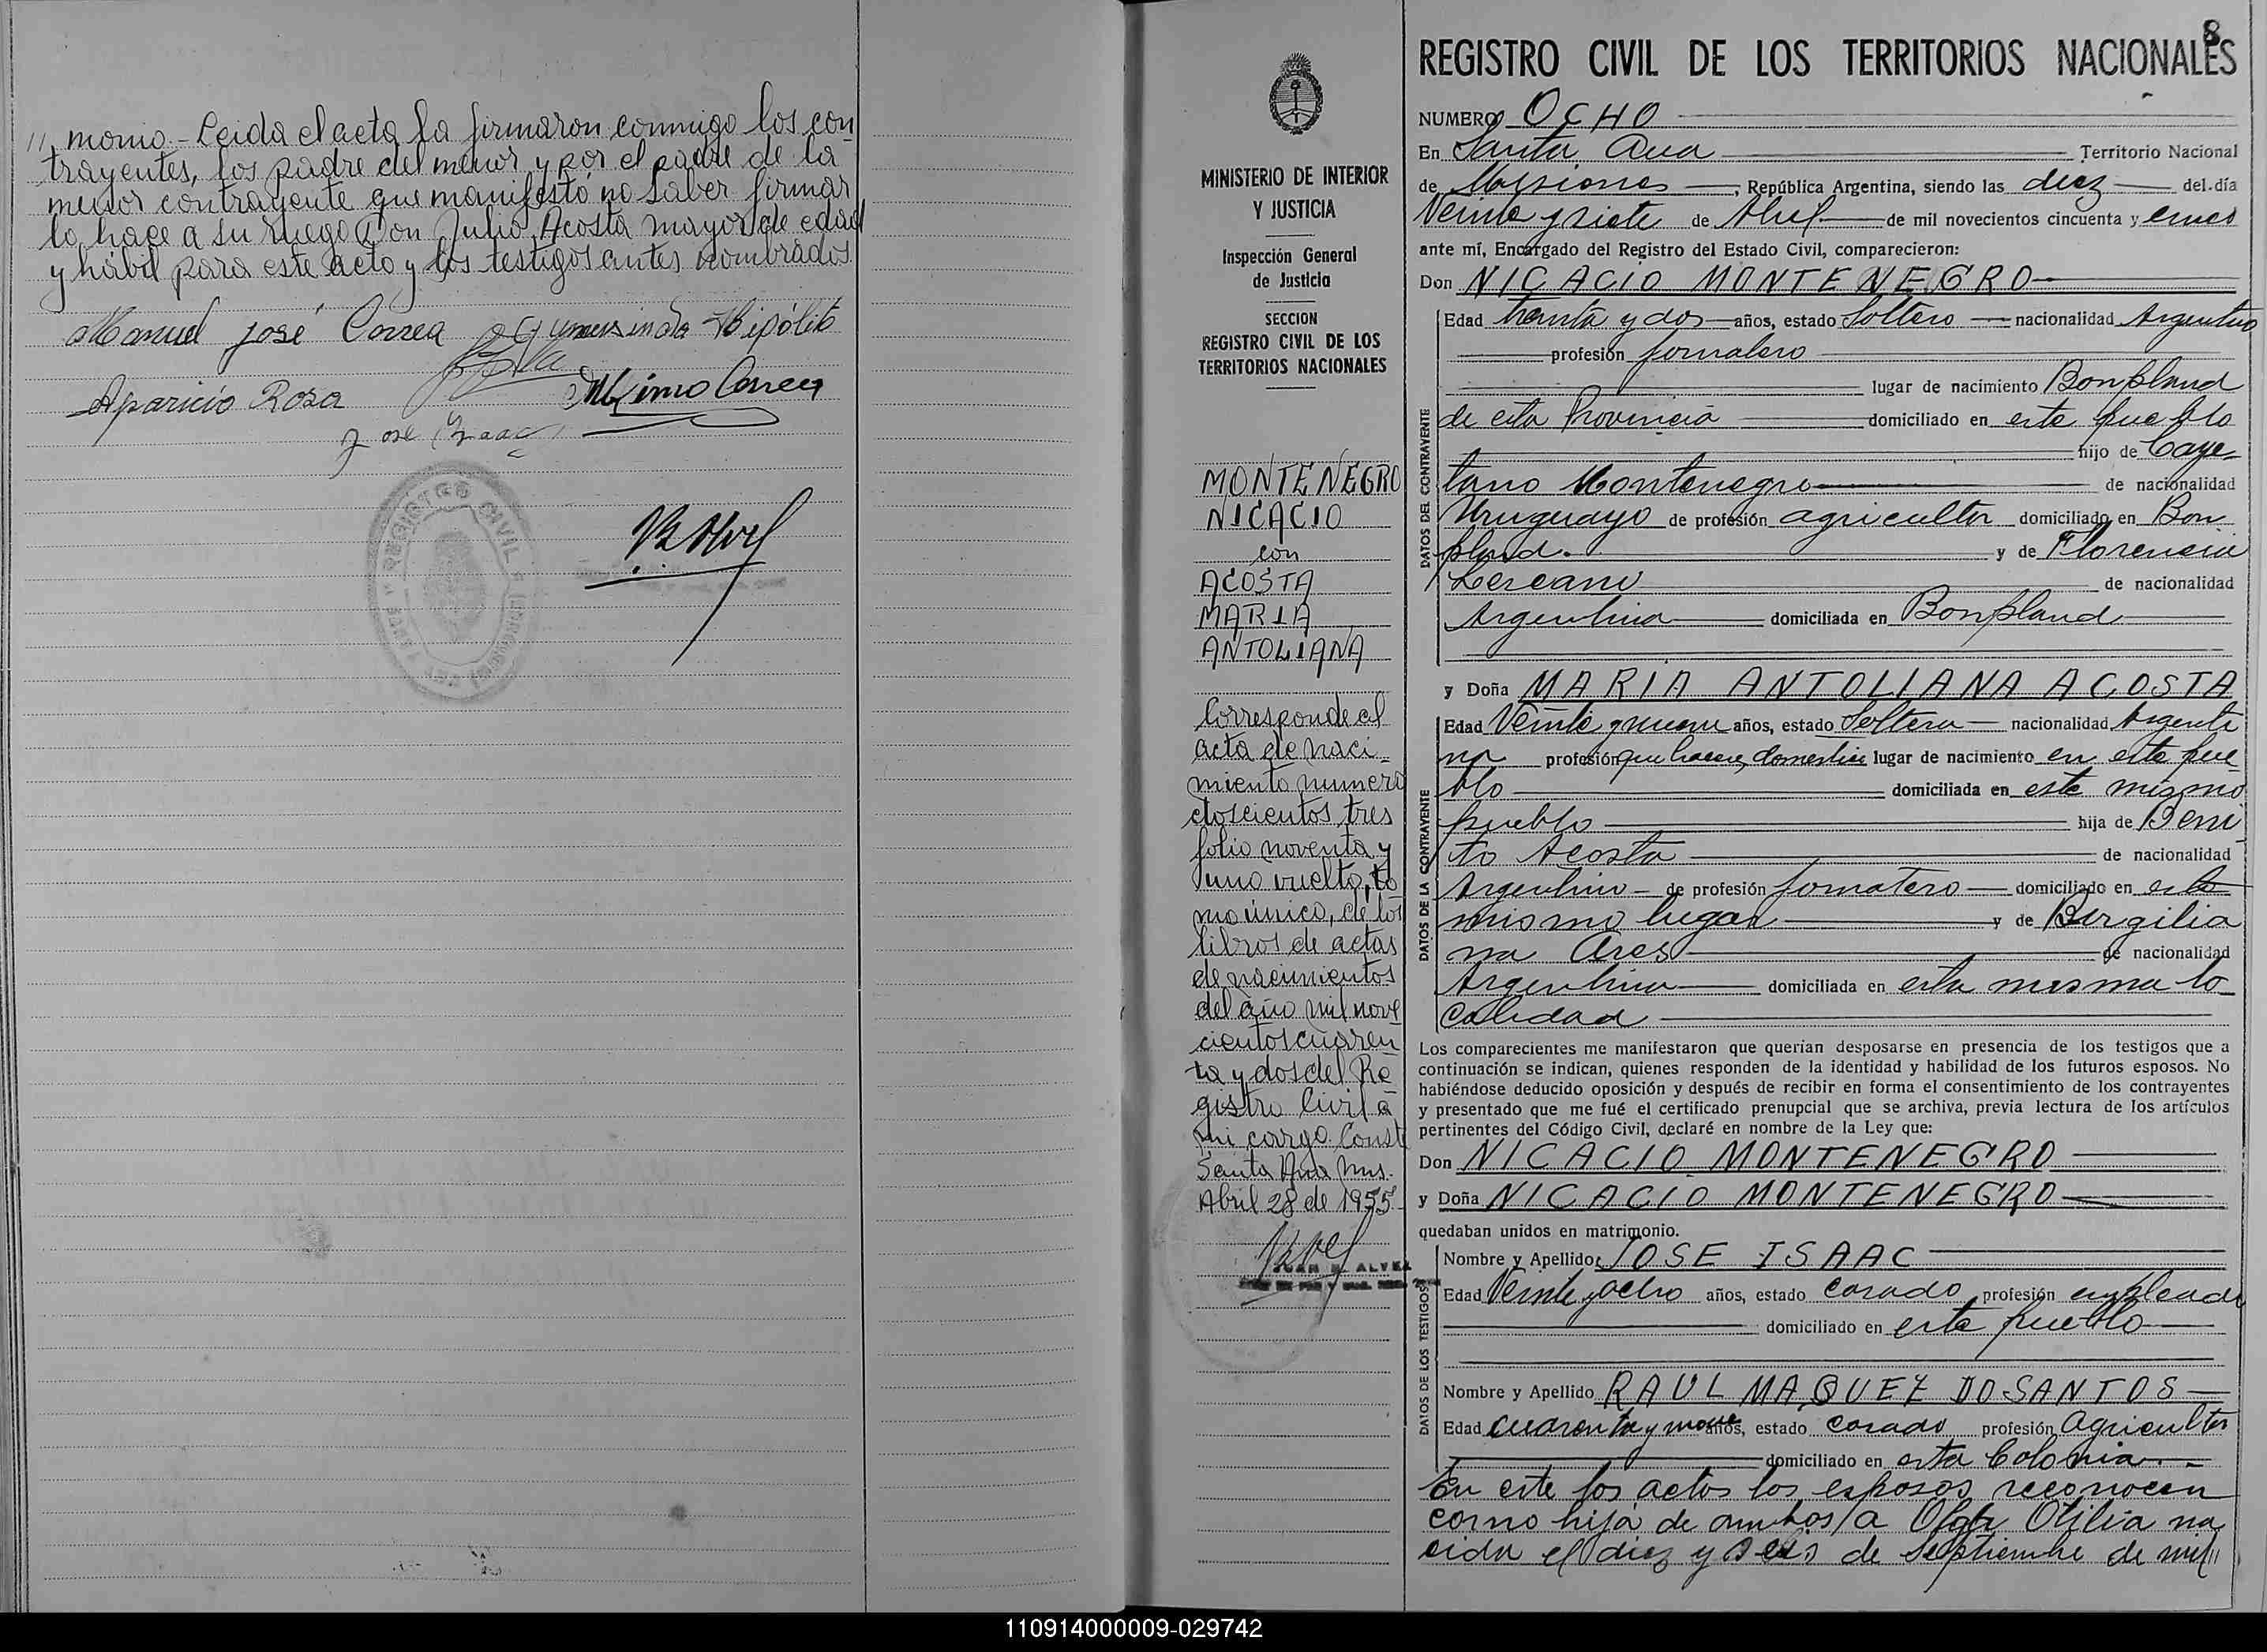 // monio.- Leida el acta la firmaron conmigo los con
trayentes, los padre del menor y por el padre de la
menor contrayente que manifestó no saber firmar
lo hace a su ruego Don Julio Acosta mayor de edad
y hábil para este acto y los testigos antes nombrados.
Manuel José Correa Gumersinda Hipólito
Aparicio Rosa Máximo Correa
José Isaac
REGISTRO CIVIL
MINISTERIO DE INTERIOR
Y JUSTICIA
Inspección General
de Justicia
SECCION
REGISTRO CIVIL DE LOS
TERRITORIOS NACIONALES
MONTENEGRO
NICACIO
con
ACOSTA
MARIA
ANTOLIANA
Corresponde al
acta de naci-
miento numero
doscientos tres
folio noventa y
uno vuelto, to
mo único, de los
libros de actas
de nacimientos
del año mil nove
cientos cuaren
ta y dos del Re
gistro Civil a
mi cargo. Conste
Santa Ana Mns.
Abril 28 de 1955
8
REGISTRO CIVIL DE LOS TERRITORIOS NACIONALES
NUMERO OCHO
En Santa Ana Territorio Nacional
de Misiones, República Argentina, siendo las diez del día
Veinte y siete de Abril de mil novecientos cincuenta y cinco
ante mí, Encargado del Registro del Estado Civil, comparecieron:
Don NICACIO MONTENEGRO
DATOS DEL CONTRAYENTE
Edad treinta y dos años, estado Soltero nacionalidad Argentino
profesión Jornalero
lugar de nacimiento Bonpland
de esta Provincia domiciliado en este pueblo
hijo de Caye-
tano Montenegro de nacionalidad
Uruguayo de profesión agricultor domiciliado en Bon
pland. y de Florencia
Lercano de nacionalidad
Argentina domiciliada en Bonpland
y Doña MARIA ANTOLIANA ACOSTA
DATOS DE LA CONTRAYENTE
Edad Veinte y nueve años, estado Soltera nacionalidad Argenti
na profesión que haceres domestico lugar de nacimiento en este pue
blo domiciliada en este mismo
pueblo hija de Beni
to Acosta de nacionalidad
Argentino de profesión Jornalero domiciliado en este
mismo lugar y de Birgilia
na Ares de nacionalidad
Argentina domiciliada en esta misma lo
calidad
Los comparecientes me manifestaron que querían desposarse en presencia de los testigos que a
continuación se indican, quienes responden de la identidad y habilidad de los futuros esposos. No
habiéndose deducido oposición y después de recibir en forma el consentimiento de los contrayentes
y presentado que me fué el certificado prenupcial que se archiva, previa lectura de los artículos
pertinentes del Código Civil, declaré en nombre de la Ley que:
Don NICACIO MONTENEGRO
y Doña NICACIO MONTENEGRO
quedaban unidos en matrimonio.
DATOS DE LOS TESTIGOS
Nombre y Apellido JOSE ISAAC
Edad Veinte y ocho años, estado casado profesión empleado
domiciliado en este pueblo
Nombre y Apellido RAUL MAQUEZ DOSANTOS
Edad cuarenta y nueve años, estado casado profesión Agricultor
domiciliado en esta Colonia.
En este los actos los esposos reconocen
como hija de ambos a Olga Otilia na
cida el diez y seis de Septiembre de mil//
110914000009-029742